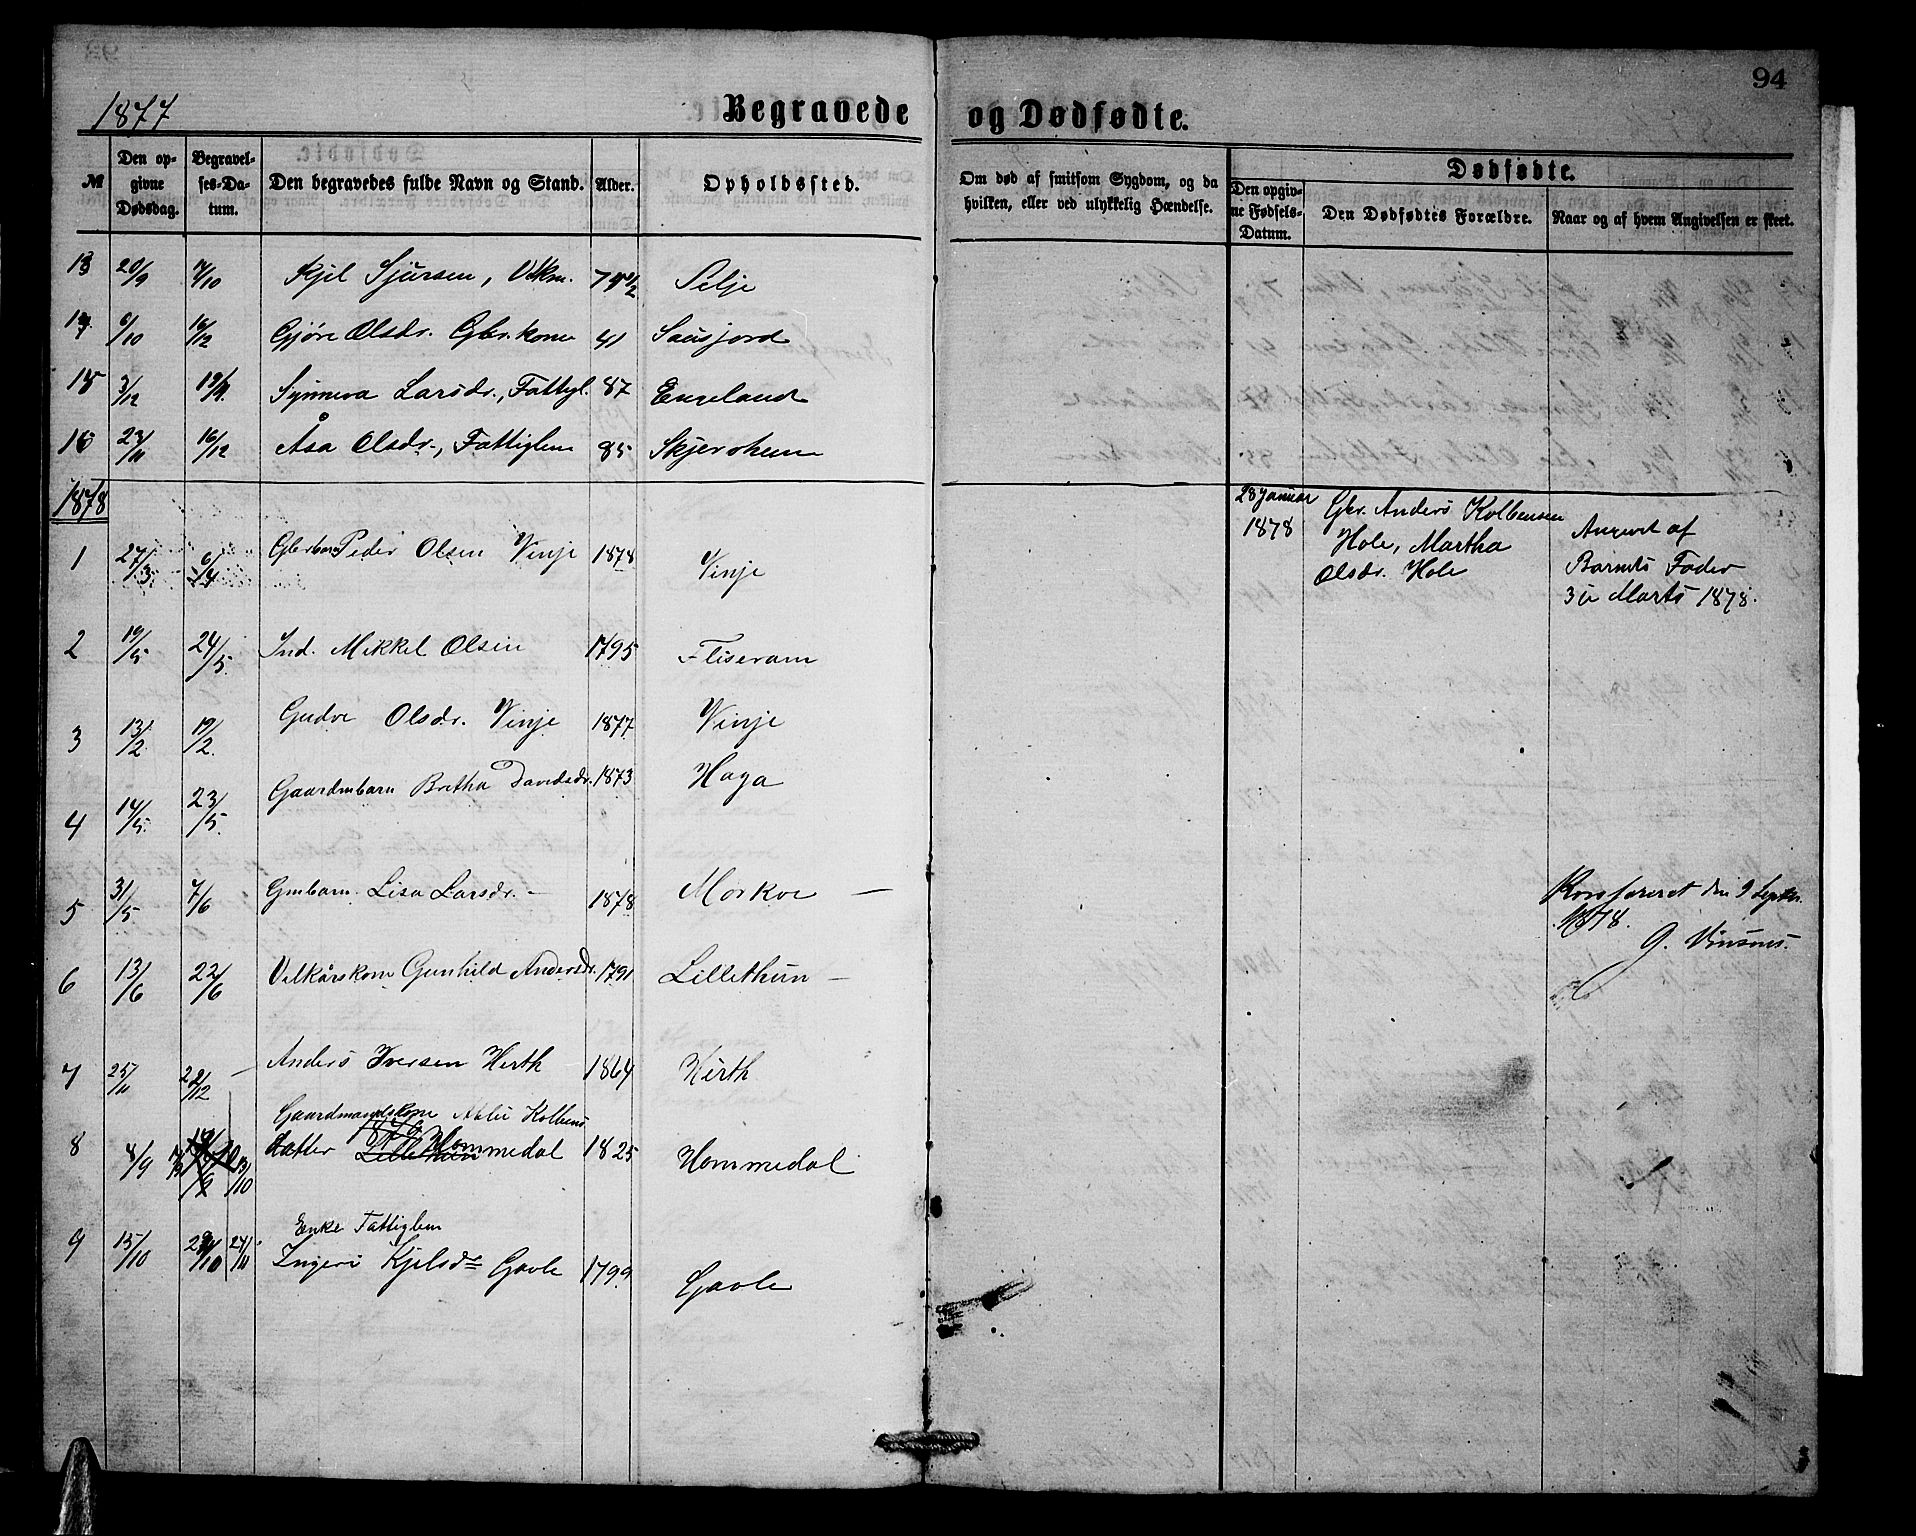 94
1877
Begravede og Dødfødte.
№
Den opgivne Dødsdag.
Begravelses-Datum.
Den begravedes fulde Navn og Stand.
Alder.
Opholdssted.
Om død af smitsom Sygdom, og da hvilken, eller ved ulykkelig Hændelse.
Dødfødte.
Den opgivne Fødsels-Datum.
Den Dødfødtes Forældre.
Naar og af hvem Angivelsen er skeet.
13 20/9 7/10 Kjel Sjursen, Vlkm. Selje
14 6/10 16/12 Gjøre Olsdr. Gbr.kone 41 Sausjord
15 3/12 Synneva Larsdr., Fattigl. 87 Engeland
16 23/11 16/12 Åsa Olsdr., Fattiglem 85 Skjersheim
1878
28 Januar 1878
Gbr. Anders Kolbensen
Hole, Martha
Olsdr. Hole
af
Barnets Fader
Marts 1878.
1 27/3 6/4 Peder Olsen Vinje 1878 Vinje
2 19/5 24/5 Ind. Mikkel Olsen 1795 Fliseram
3 13/2 19/2 Gudve Olsdr. Vinje 1877 Vinje
4 14/5 23/5 Gaardmbarn Bretha Davidsdr. 1873 Haga
5 31/5 7/6 Gmbarn Lisa Larsdr. – 1878 Mørkve –
Konfereret den 9 Septbr.
1878.
6 13/6 22/6 Vilkårskone Gunhild Andersdr. 1791 Lillethun –
7 25/11 22/12 – Anders Iversen Hirth 1864 Hirth
Gaardmandskone Kolbens
8 8/9 13/10 datter Lillethun Hommedal 1825 Hommedal
Enke Fattiglem
9 15/10 24/11 Ingeri Kjelsdr Gavle 1799 Gavle